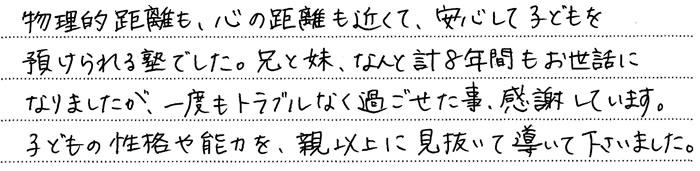 物理的距離も、心の距離も近くて、安心して子どもを
預けられる塾でした。兄と妹、なんと計8年間もお世話に
なりましたが、一度もトラブルなく過ごせた事、感謝しています。
子どもの性格や能力を、親以上に見抜いて導いて下さいました。